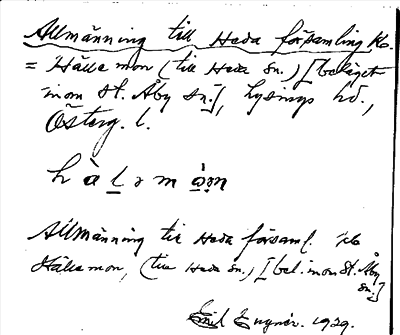 Allmänning till Heda församling kb.
= Hälla mon (till Heda sn.) [beläget
inom St. Åby sn.], Lysings hd.,
Österg. l.
h à l ə m ò̤n
Allmänning till Heda församl. kb
Hälla mon, (till Heda sn.) [bel. inom St. Åby
sn.]
Emil 1929.